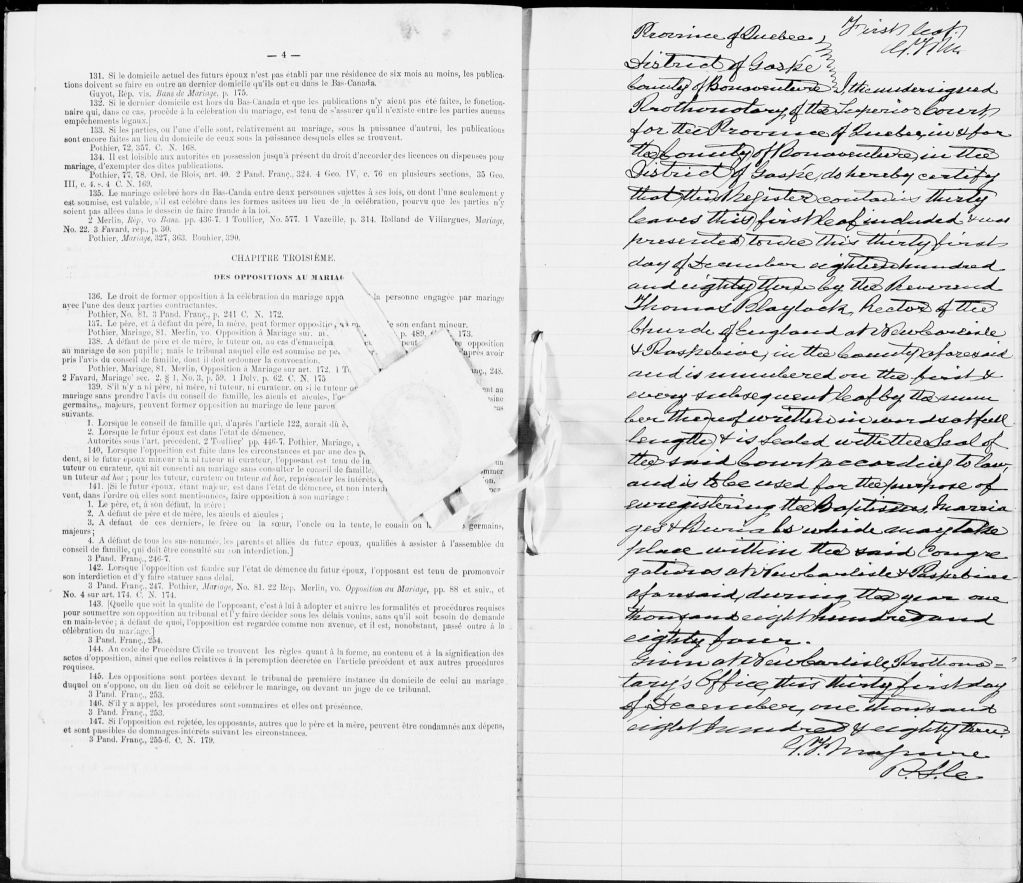 — 4 —
131. Si le domicile actuel des futurs époux n'est pas établi par une résidence de six mois au moins, les publica-
tions doivent se faire en outre au dernier domicile qu'ils ont eu dans le Bas-Canada.
Guyot, Rép. vis. Bans de Mariage, p. 175.
132. Si le dernier domicile est hors du Bas-Canada et que les publications n'y aient pas été faites, le fonction-
naire qui, dans ce cas, procède à la célébration du mariage, est tenu de s'assurer qu'il n'existe entre les parties aucuns
empêchements légaux.
133. Si les parties, ou l'une d'elle sont, relativement au mariage, sous la puissance d'autrui, les publications
sont encore faites au lieu du domicile de ceux sous la puissance desquels elles se trouvent.
Pothier, 72, 357. C. N. 168.
134. Il est loisible aux autorités en possession jusqu'à présent du droit d'accorder des licences ou dispenses pour
mariage, d'exempter des dites publications.
Pothier, 77, 78. Ord. de Blois, art. 40. 2 Pand. Franç., 324. 4 Geo. IV, c. 76 en plusieurs sections, 35 Geo.
III, c. 4. s. 4 C. N. 169.
135. Le mariage célébré hors du Bas-Canda entre deux personnes sujettes à ses lois, ou dont l'une seulement y
est soumise, est valable, s'il est célébré dans les formes usitées au lieu de la célébration, pourvu que les parties n'y
soient pas allées dans le dessein de faire fraude à la loi.
2 Merlin, Rép. vo Bans. pp. 436-7. 1 Toullier, No. 577. 1 Vazeille, p. 314. Rolland de Villargues, Mariage,
No. 22. 3 Favard, rép., p. 30.
Pothier, Mariage, 327, 363. Bouhier, 390.
CHAPITRE TROISIÈME.
DES OPPOSITIONS AU MARIAG
136. Le droit de former opposition à la célébration du mariage appa la personne engagée par mariage
avec l'une des deux parties contractantes.
Pothier, No. 81. 3 Pand. Franç., p. 241 C. N. 172.
137. Le père, et à défaut du père, la mère, peut former oppositio son enfant mineur.
Pothier, Mariage, 81. Merlin, vo. Opposition à Mariage sur. p. 489, 173.
138. A défaut de père et de mère, le tuteur ou, au cas d'émancipa peut opposition
au mariage de son pupille; mais le tribunal auquel elle est soumise ne pe après avoir
pris l'avis du conseil de famille, dont il doit ordonner la convocation.
Pothier, Mariage, 81. Merlin, Opposition à Mariage sur art. 172. 1 To nç., 248.
2 Favard, Mariage sec. 2. § 1, No. 3, p. 59. 1 Delv. p. 62. C. N. 175
139. S'il n'y a ni père, ni mère, ni tuteur, ni curateur, ou si le tuteur o nt au
mariage sans prendre l'avis du conseil de famille, les aieuls et aieules, l'on sine
germains, majeurs, peuvent former opposition au mariage de leur paren
suivants.
1. Lorsque le conseil de famille qui, d'après l'article 122, aurait dû ê
2. Lorsque le futur époux est dans l'état de démence.
Autorités sous l'art. précédent. 2 Toullier pp. 446-7. Pothier, Mariage,
140. Lorsque l'opposition est faite dans les circonstances et par une des p
dent, si le futur époux mineur n'a ni tuteur ni curateur, l'opposant est tenu de
tuteur ou curateur, qui ait consenti au mariage sans consulter le conseil de famille, mmer
un tuteur ad hoc; pour les tuteur, curateur ou tuteur ad hoc, représenter les intérêts on.
141. [Si le futur époux, étant majeur, est dans l'état de démence, et non interdi
vent, dans l'ordre où elles sont mentionnées, faire opposition à son mariage:
1. Le père, et, à son défaut, la mère;
2. A défaut de père et de mère, les aieuls et aieules;
3. A défaut de ces derniers, le frère ou la sœur, l'oncle ou la tente, le cousin ou l germains,
majeurs;
4. A défaut de tous les sus-nommés, les parents et alliés du futur époux, qualifiés à assister à l'assemblée du
conseil de famille, qui doit être consulté sur son interdiction.]
3 Pand. Franç., 246-7.
142. Lorsque l'opposition est fondée sur l'état de démence du futur époux, l'opposant est tenu de promouvoir
son interdiction et d'y faire statuer sans délai.
3 Pand. Franç., 247. Pothier, Mariage, No. 81. 22 Rep. Merlin, vo. Opposition au Mariage, pp. 88 et suiv., et
No. 4 sur art. 174. C. N. 174.
143. [Quelle que soit la qualité de l'opposant, c'est à lui à adopter et suivre les formalités et procédures requises
pour soumettre son opposition au tribunal et l'y faire décider sous les délais voulus, sans qu'il soit besoin de demande
en main-levée; à défaut de quoi, l'opposition est regardée comme non avenue, et il est, nonobstant, passé outre à la
célébration du mariage.]
3 Pand. Franç., 254.
144. Au code de Procédure Civile se trouvent les règles quant à la forme, au contenu et à la signification des
actes d'opposition, ainsi que celles relatives à la peremption décrétée en l'article précédent et aux autres procédures
requises.
145. Les oppositions sont portées devant le tribunal de première instance du domicile de celui au mariage
duquel on s'oppose, ou du lieu où doit se célébrer le mariage, ou devant un juge de ce tribunal.
3 Pand. Franç., 253.
146. S'il y a appel, les procédures sont sommaires et elles ont préséance.
3 Pand. Franç., 253.
147. Si l'opposition est rejetée, les opposants, autres que le père et la mère, peuvent être condamnés aux dépens,
et sont passibles de dommages-intérêts suivant les circonstances.
3 Pand. Franç., 255-6. C. N. 179.
First leaf.
Province of Quebec
District of Gaspé
County of Bonaventure I the undersigned
Prothonotary of the Superior Court,
for the Province of Quebec, in & for
the County of Bonaventure, in the
District of Gaspé, do hereby certify
that this Register contains thirty
leaves this first leaf included & was
presented to me this thirty first
day of December eighteen hundred
and eighty three by the Reverend
Thomas Blaylock, Rector of the
Church of England at New Carlisle
& Paspebiac, in the County aforesaid
and is numbered on the first &
every subsequent leaf by the num
ber thereof written in words at full
length & is sealed with the Seal of
the said Court according to law,
and is to be used for the purpose of
enregistering the Baptisms, Marria
ges & Burials which may take
place within the said Congre
gations at New Carlisle & Paspebiac
aforesaid, during the year one
thousand eight hundred and
eighty four.
Given at New Carlisle, Prothono=
tary's Office, this thirty first day
of December, one thousand
eight hundred & eighty three.
P. S. C.